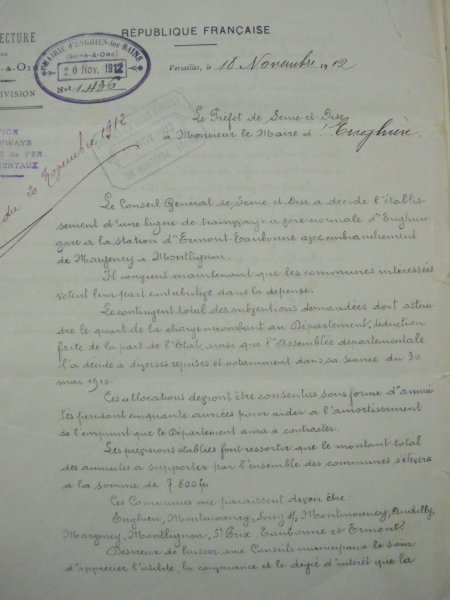 ECTURE
RÉPUBLIQUE FRANÇAISE
-&-OISE
Versailles, le 18 Novembre 1912
MAIRIE D'ENGHIEN-les-BAINS
(Seine-&-Oise)
20 Nov. 1912
No 1.436
DIVISION
Le Préfet de Seine-et-Oise
Monsieur le Maire d'Enghien
VICE
TRAMWAYS
de FER
du 20 Novembre 1912
Le Conseil Général de Seine-et-Oise a décidé l'établis-
sement d'une ligne de tramways à voie normale d'Enghien
gare à la station d'Ermont-Eaubonne avec embranchement
de Margency à Montlignon.
Il convient maintenant que les communes intéressées
votent leur part contributive dans la dépense.
Le contingent total des subventions demandées doit attein-
dre le quart de la charge incombant au Département, déduction
faite de la part de l'Etat, ainsi que l'Assemblée départementale
l'a décidé à diverses reprises et notamment dans sa séance du 30
mai 1910.
Ces allocations devront être consenties sous forme d'annui-
tés pendant cinquante années pour aider à l'amortissement
de l'emprunt que le Département aura à contracter.
Les prévisions établies font ressortir que le montant total
des annuités à supporter par l'ensemble des communes, s'élèvera
à la somme de 7.800 fr.
Ces Communes me paraissent devoir être:
Enghien, Montmorency, Soisy s/ Montmorency, Andilly,
Margency, Montlignon, St Prix Eaubonne et Ermont.
Désireux de laisser aux Conseils municipaux le soin
d'apprécier l'utilité, la convenance et le degré d'intérêt que la